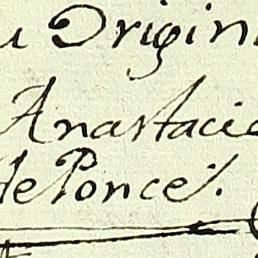 u Origin
Anastacio
de Ponce.